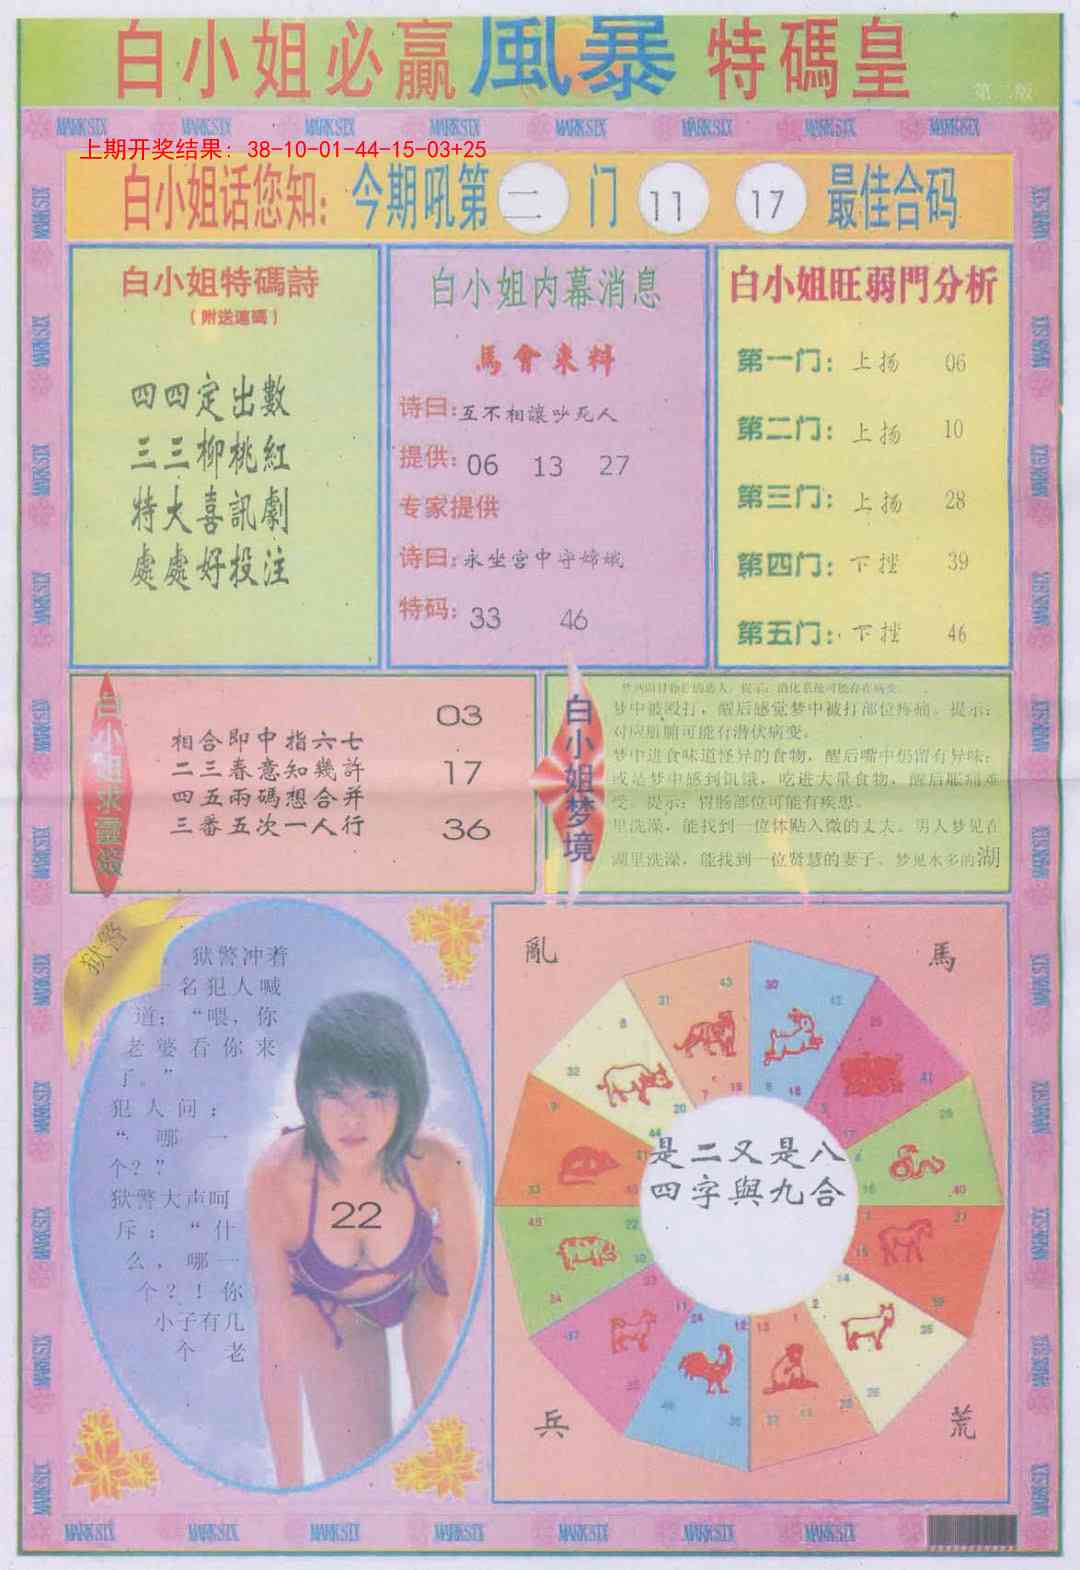 白小姐必赢風暴特碼皇
第二版
MARK SIX MARK SIX MARK SIX MARK SIX MARK SIX MARK SIX MARK SIX MARK SIX
上期开奖结果: 38-10-01-44-15-03+25
白小姐话您知: 今期吼第 二 门 11 17 最佳合码
白小姐特碼詩
(附送連碼)
四四定出數
三三柳桃紅
特大喜訊劇
處處好投注
白小姐内幕消息
馬會来料
诗曰:互不相讓吵死人
提供: 06 13 27
专家提供
诗曰:永坐宫中守嫦娥
特码: 33 46
白小姐旺弱門分析
第一门: 上扬 06
第二门: 上扬 10
第三门: 上扬 28
第四门: 下挫 39
第五门: 下挫 46
白小姐求靈簽
相合即中指六七
二三春意知幾許
四五兩碼想合并
三番五次一人行
03
17
36
白小姐梦境
梦中被殴打，醒后感觉梦中被打部位疼痛。提示:
对应脏腑可能有潜伏病变。
梦中进食味道怪异的食物，醒后嘴中仍留有异味;
或是梦中感到饥饿，吃进大量食物，醒后胀痛难
受。提示: 胃肠部位可能有疾患。
里洗澡，能找到一位体贴入微的丈夫。男人梦见在
湖里洗澡，能找到一位贤慧的妻子。梦见水多的湖
狱警
狱警冲着
一名犯人喊
道: “喂，你
老婆看你来
了。”
犯人问:
“哪一
个？”
狱警大声呵
斥: “什
么，哪一
个？！你
小子有几
个老
22
亂
馬
兵
荒
是二又是八
四字與九合
MARK SIX MARK SIX MARK SIX MARK SIX MARK SIX MARK SIX MARK SIX